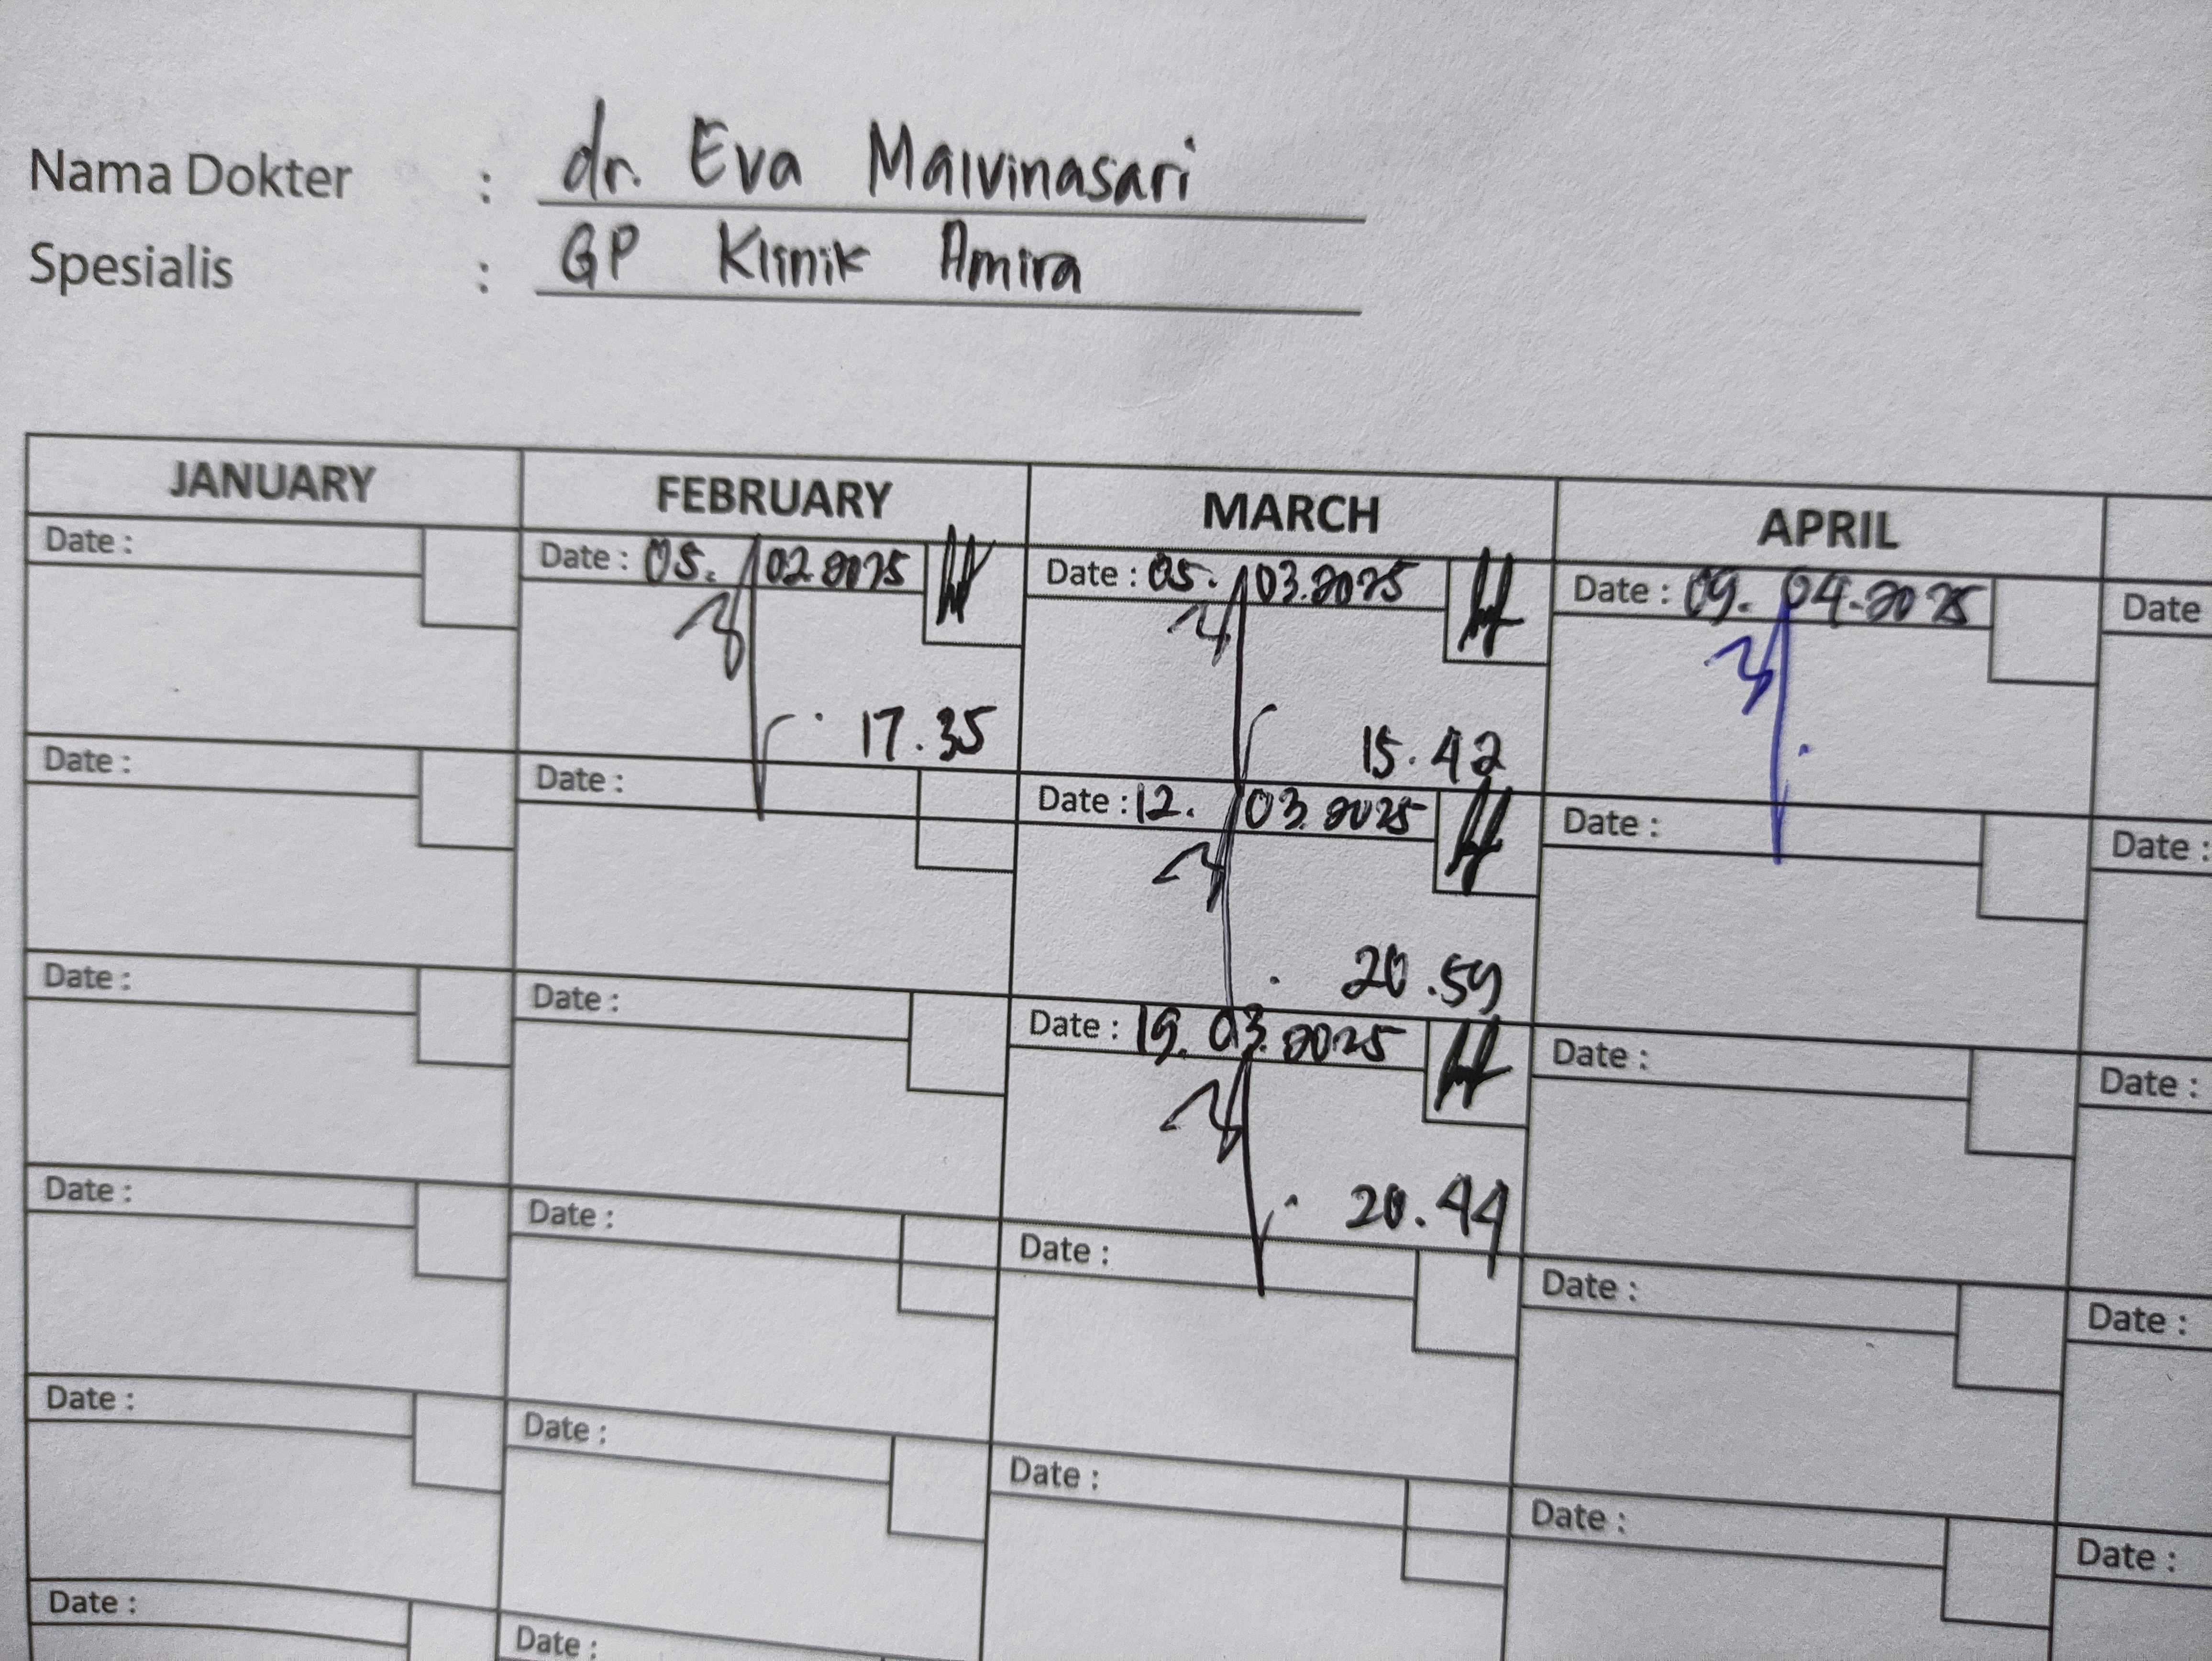 Nama Dokter : dr. Eva Malvinasari
Spesialis : GP Klinik Amira
JANUARY FEBRUARY MARCH APRIL
Date : Date : 05. 02.2025 Date : 05. 03.2025 Date : 09. 04.2025 Date
17.35 15.42
Date : Date : Date : 12. 03.2025 Date : Date :
20.59
Date : Date : Date : 19.03.2025 Date : Date :
20.44
Date : Date : Date : Date : Date :
Date : Date : Date : Date : Date :
Date : Date :